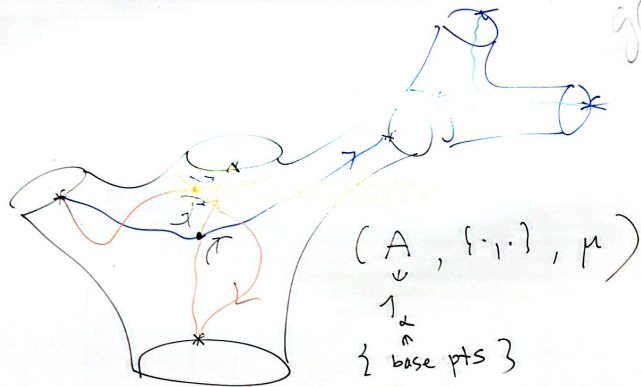 ( A , {·,·} , μ )
1_α
{ base pts }